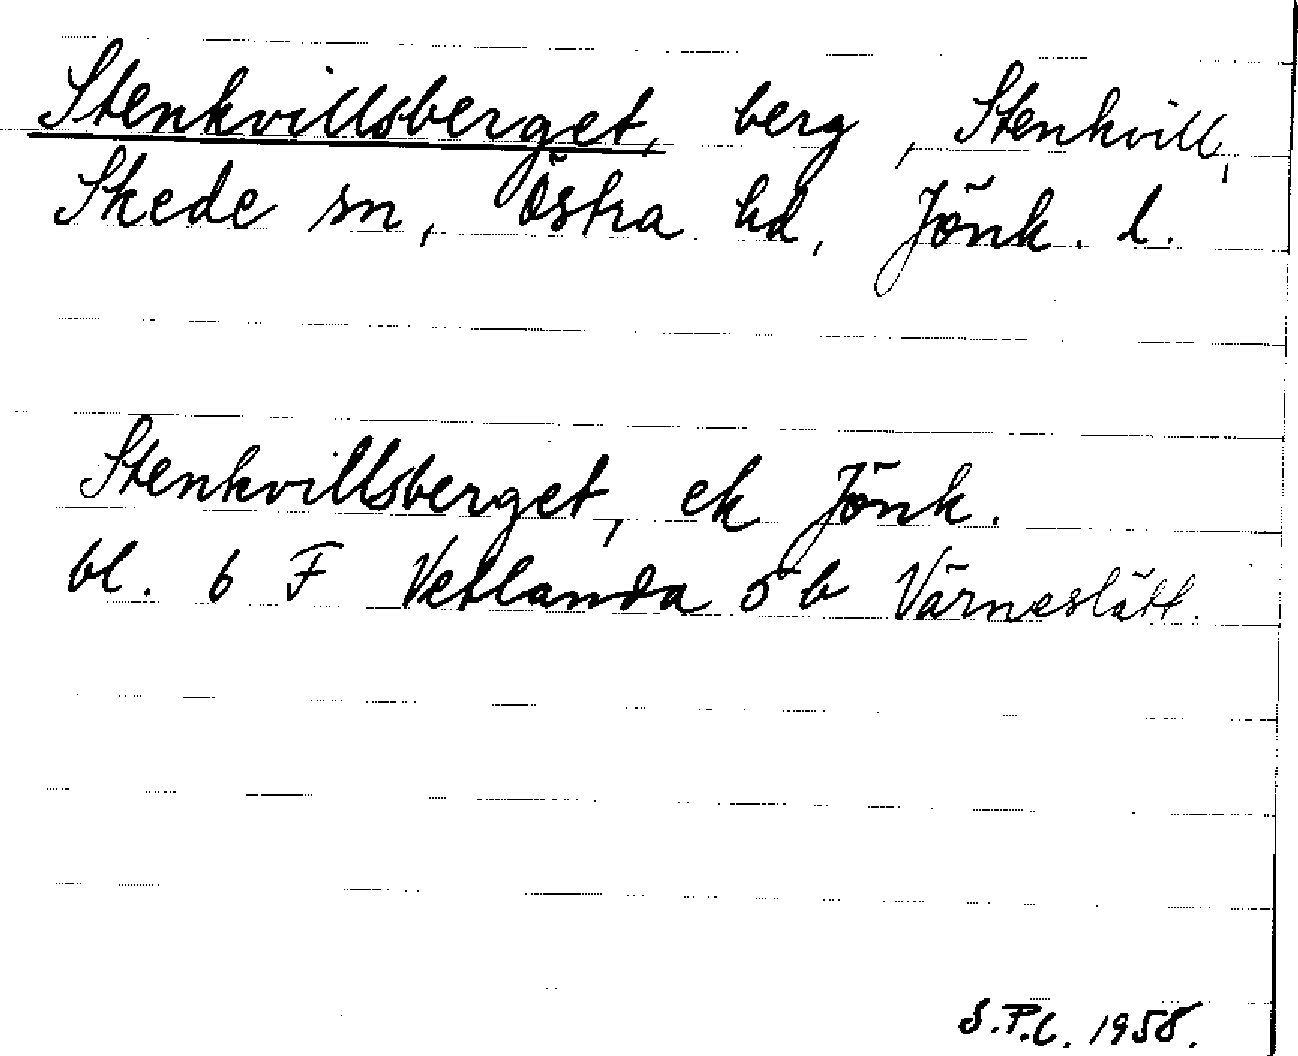 Stenkvillsberget, berg, Stenkvill,
Skede sn, Östra hd, Jönk. l.
Stenkvillsberget, ek Jönk.
bl. 6 F Vetlanda 5 b Värneslätt.
S.F.C. 1958.